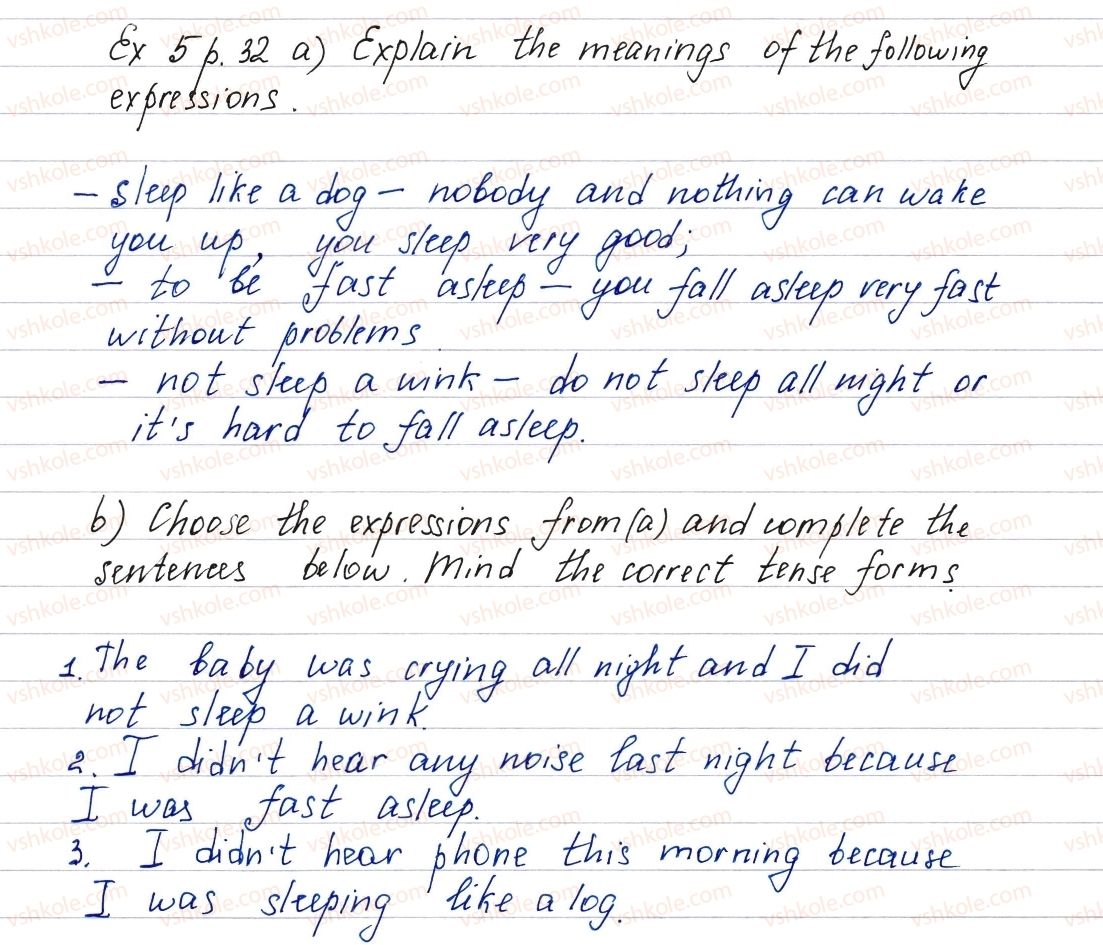 Ex 5 p. 32 a) Explain the meanings of the following
expressions.
– sleep like a dog – nobody and nothing can wake
you up, you sleep very good;
– to be fast asleep – you fall asleep very fast
without problems
– not sleep a wink – do not sleep all night or
it's hard to fall asleep.
b) Choose the expressions from (a) and complete the
sentences below. Mind the correct tense forms.
1. The baby was crying all night and I did
not sleep a wink.
2. I didn't hear any noise last night because
I was fast asleep.
3. I didn't hear phone this morning because
I was sleeping like a log.